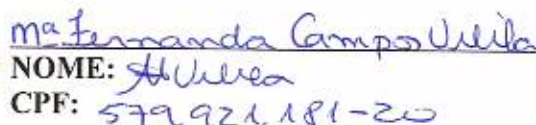 Mª Fernanda Campos Vilela
NOME:
CPF: 579.921.181-20